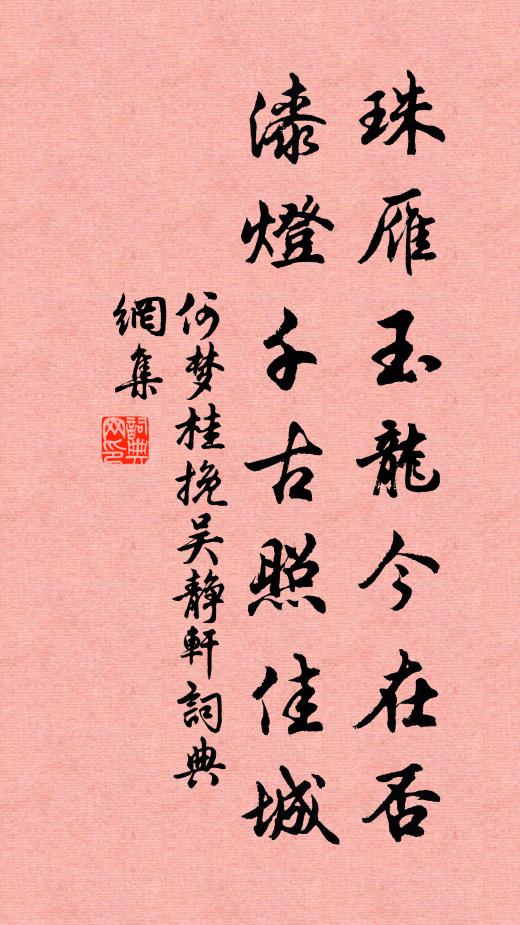 珠雁玉龍今在否
漆燈千古照佳城
何梦桂挽吴静軒詞典
網集
詞典
网印